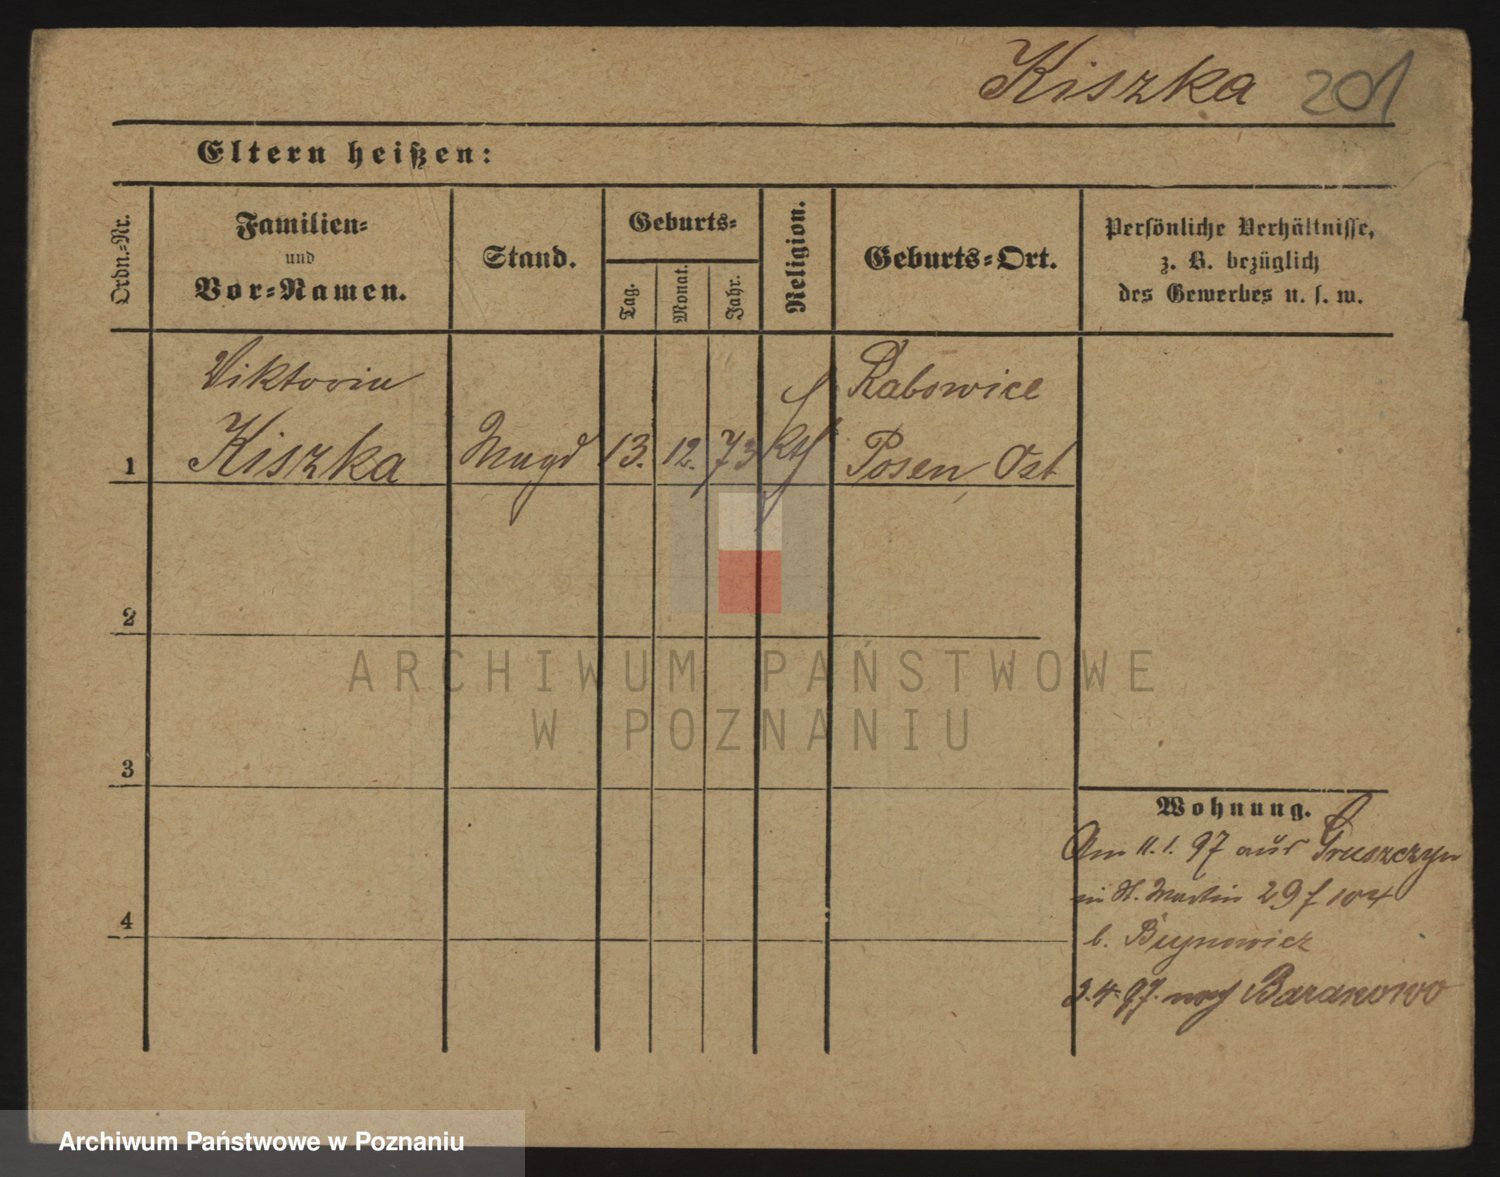 Kiszka 201
Eltern heißen:
Ordn.-Nr.
Familien-
und
Vor-Namen.
Stand.
Geburts-
Tag.
Monat.
Jahr.
Religion.
Geburts-Ort.
Persönliche Verhältnisse,
z. B. bezüglich
des Gewerbes u. s. w.
Viktoria
Kiszka
Magd
13.
12.
73
kth
Rabowice
Posen Ost
1
2
3
4
Wohnung.
Am 11.1.97 aus Gruszczyn
in St. Martin 29 f 104
b.
3.4.97. nach Baranowo
ARCHIWUM PAŃSTWOWE
W POZNANIU
Archiwum Państwowe w Poznaniu